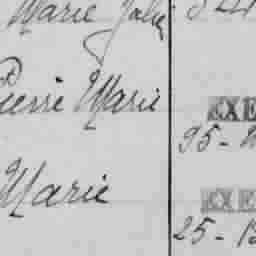 Marie Julie
Pierre Marie
EXE
95 -
Marie
EXE
25 - 12